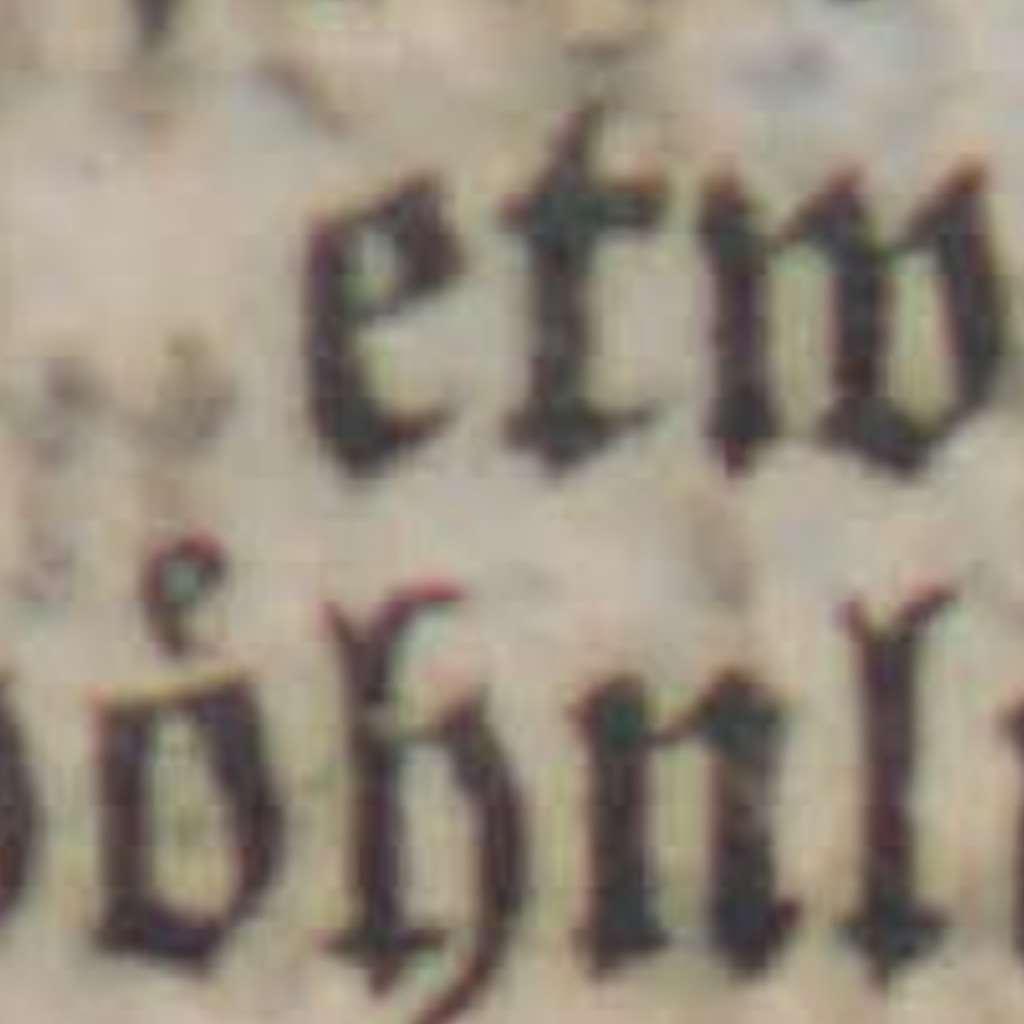 etw
oͤhnl